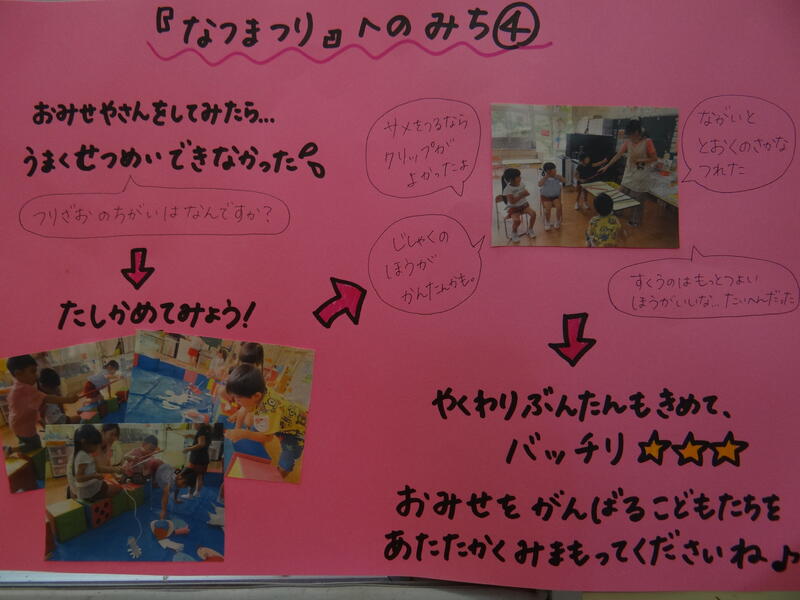 『なつまつり』へのみち④
おみせやさんをしてみたら…
うまくせつめいできなかった
つりざおのちがいはなんですか？
たしかめてみよう！
サメをつるなら
クリップが
よかったよ
じしゃくの
ほうが
かんたんかも。
ながいと
とおくのさかな
つれた
すくうのはもっとつよい
ほうがいいな…たいへんだった
やくわりぶんたんもきめて、
バッチリ☆☆☆
おみせをがんばるこどもたちを
あたたかくみまもってくださいね♪